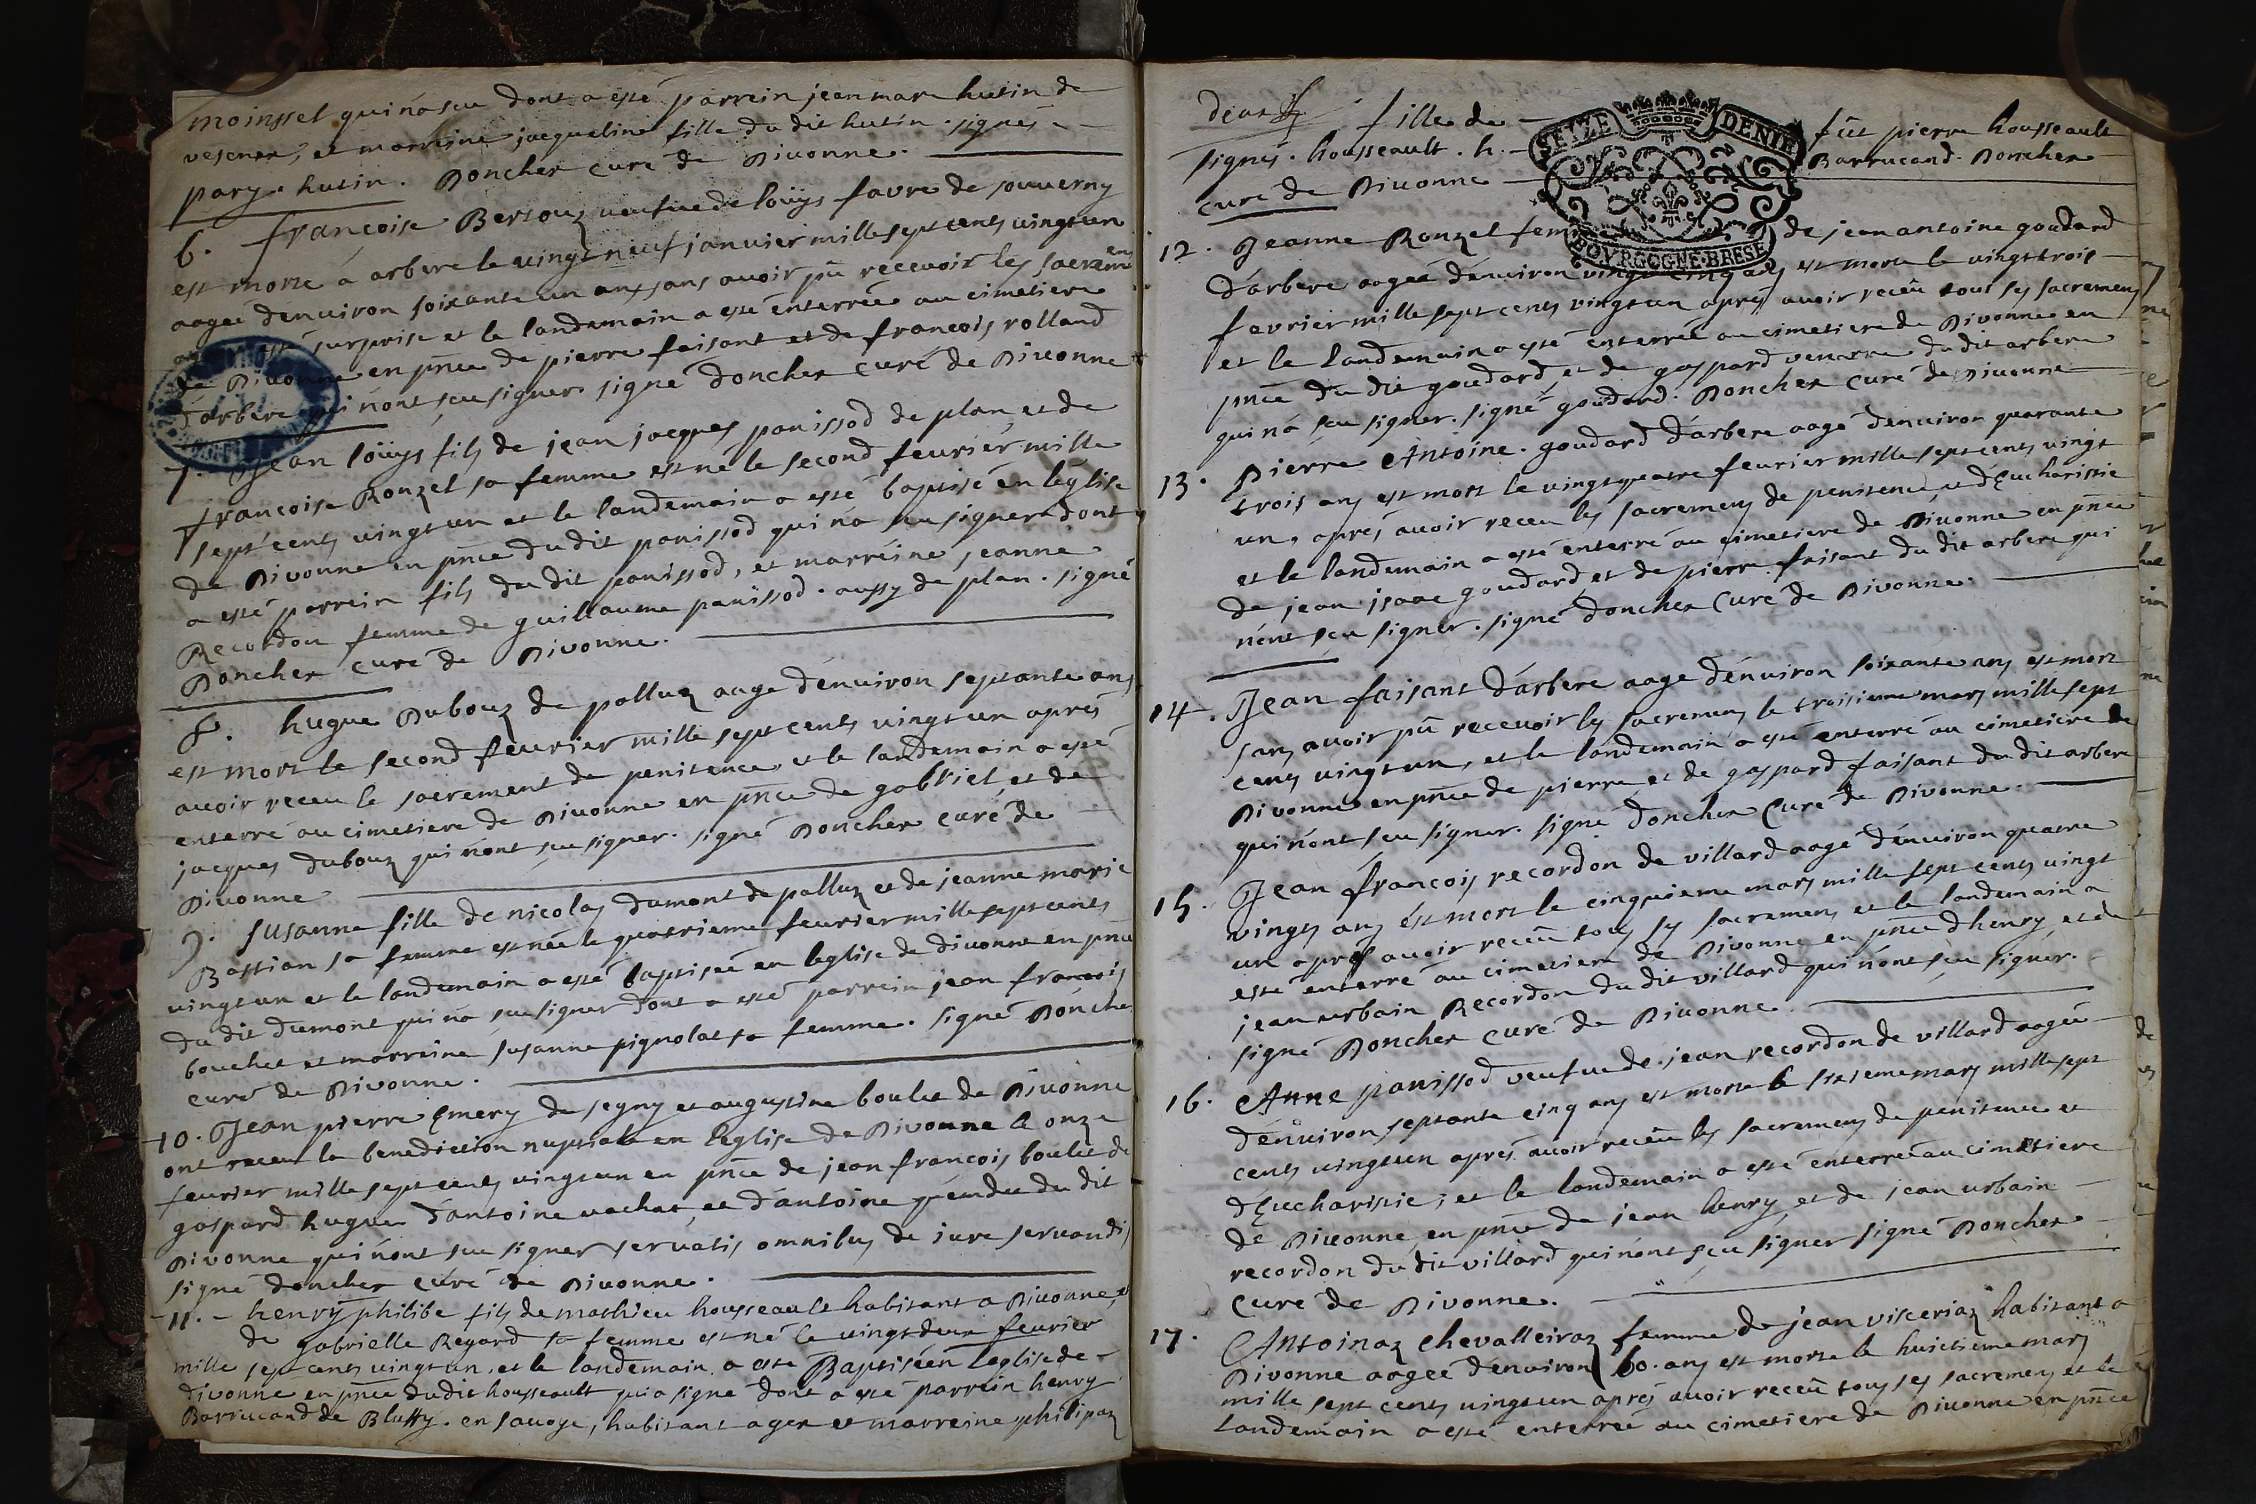 moinssel qui n'a sceu dont a esté parrein jean marc hutin de
vesenex, et marreine jacqueline fille du dit hutin. signés
pary. hutin. Doncher curé de Divonne.
6. françoise Bersouz veufue de loüys favre de souuerny
est morte à arbere le vingt neuf januier mille sept cents vingt un
aagée d'enuiron soixante un ans sans auoir pû receuoir les sacremens
surprise et le landemain a esté enterrée au cimetiere
de Diuonne en pnce de pierre faisant et de françois rolland
d'arbere qui n'ont sceu signer signé doncher curé de Diuonne
7. Jean loüys fils de jean jacques panissod de plan, et de
françoise Ronzel sa femme est né le second feurier mille
sept cents vingt un et le landemain a esté baptisé en l'église
de Divonne en pnce du dit panissod qui n'a sceu signer dont
a esté parrein fils du dit panissod, et marreine jeanne
Recordon femme de guillaume panissod. aussy de plan. signé
Doncher curé de Divonne.
8. hugue Dubouz de polluz aagé d'enuiron septante ans
est mort le second feurier mille sept cents vingt un après
auoir receu le sacrement de penitence et le landemain a esté
enterré au cimetiere de Diuonne en pnce de gabriel, et de
jacques dubouz qui n'ont sceu signer. signé Doncher curé de
Divonne
9. susanne fille de nicolas dumont de polluz et de jeanne marie
Bastian sa femme est née le quatrieme feurier mille sept cents
vingt un et le landemain a esté baptisée en l'eglise de divonne en pnce
du dit dumont qui n'a sceu signer dont a esté parrein jean françois
bouchet et marreine susanne pignolat sa femme. signé Doncher
curé de Divonne.
10. Jean pierre Emery de segny et augustine boulet de Diuonne
ont receu la benediction nuptiale en l'eglise de Divonne le onze
feurier mille sept cents vingt un en pnce de jean françois boulet de
gaspard hugues d'antoine vachat, et d'antoine du dit
Divonne qui n'ont sceu signer servatis omnibus de jure servandis
signé doncher curé de Divonne.
11. henry philibe fils de mathieu housseault habitant a Divonne, et
de gabrielle Regard sa femme est né le vingt deux feurier
mille sept cents vingt un. et le landemain a esté Baptisé en l'eglise de
divonne en pnce du dit housseault qui a signé dont a esté parrein henry
Barrucand de Bluffy. en sauoye, habitant a gex et marreine philipaz
deaz fille de fût pierre housseault
signés. housseault. h. Barrucand. Doncher
curé de Divonne
SEIZE DENIE
BOVRGOGNE·BRESE
12. Jeanne Ronzel fem de jean antoine goudard
d'arbere aagée d'enuiron vingt cinq ans est morte le vingt trois
fevrier mille sept cents vingt un après auoir receu tous ses sacremens
et le landemain a esté enterrée au cimetiere de Divonne en
pnce du dit goudard, et de gaspard du dit arbere
qui n'a sceu signer. signé goudard. Doncher curé de Divonne
13. Pierre Antoine. goudard d'arbere aagé d'enuiron quarante
trois ans est mort le vingt quatre feurier mille sept cents vingt
un. après auoir receu les sacremens de penitence, et d'Eucharistie
et le landemain a esté enterré au cimetiere de Divonne en pnce
de jean isaac goudard, et de pierre faisant du dit arbere qui
n'ont sceu signer. signé doncher curé de Divonne.
14. Jean faisant d'arbere aagé d'enuiron soixante ans est mort
sans auoir pû recevoir les sacremens le troisieme mars mille sept
cents vingt un, et le landemain a esté enterré au cimetiere de
Divonne en pnce de pierre, et de gaspard faisant du dit arbere
qui n'ont sceu signer. signé doncher Curé de Divonne.
15. Jean françois recordon de villard aagé d'enuiron quatre
vingts ans est mort le cinquieme mars mille sept cents vingt
un après auoir receu tous ses sacremens et le landemain a
esté enterré au cimetiere de Divonne en pnce d'henry, et de
jean urbain Recordon du dit villard qui n'ont sceu signer.
signé Doncher curé de Diuonne.
16. Anne panissod veufue de jean recordon de villard aagée
d'enuiron septante cinq ans est morte le sixieme mars mille sept
cents vingt un après auoir receu les sacremens de penitence et
d'Eucharistie; et le landemain a esté enterrée au cimetiere
de Divonne en pnce de jean henry, et de jean urbain
recordon du dit villard qui n'ont sceu signer signé Doncher
Curé de Divonne.
17. Antoinaz chevalleiraz femme de jean visceriaz habitant a
Divonne aagée d'enuiron 60. ans est morte le huictieme mars
mille sept cents vingt un après auoir receu tous ses sacremens et le
landemain a esté enterrée au cimetiere de Divonne en pnce